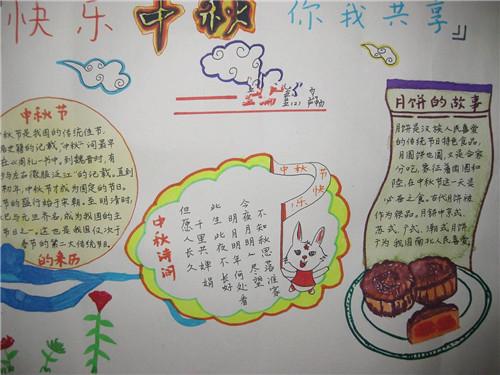 快乐中秋 你我共享』
中秋节
秋节是我国的传统佳节
史籍的记载,"中秋"一词最早
在《周礼》一书中,到魏晋时,有
与左右微服泛江"的记载,直到
初年,中秋节才成为固定的节日。
的盛行始于宋朝,至明清时,
已与元旦齐名,成为我国的主
节日之一。这也是我国仅次于
春节的第二大传统节日。
的来历
中秋节快乐
中秋诗词
今夜月明人尽望
不知秋思落谁家
此生此夜不长好
明月明年何处看
但愿人长久
千里共婵娟
月饼的故事
月饼是汉族人民喜爱
的传统节日特色食品,
月圆饼也圆,又是合家
分吃,象征着团圆和
睦,在中秋节这一天是
必备之食。古代月饼被
作为祭品。月饼中京式、
苏式、广式、潮式月饼
为我国南北人民喜爱。